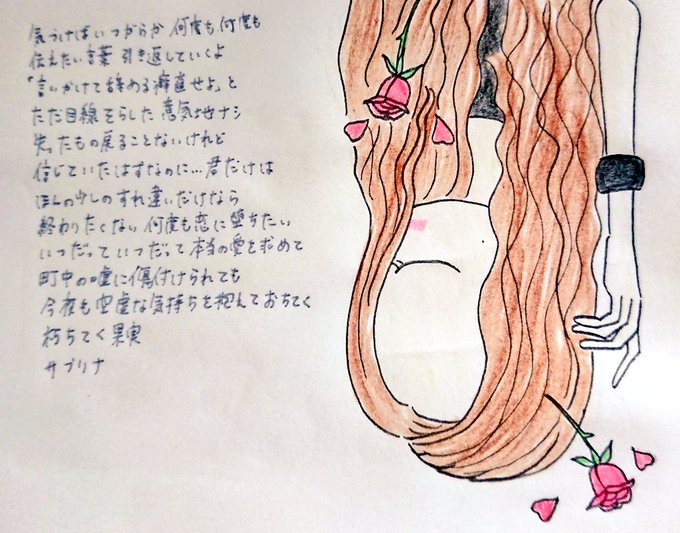 気づけばいつからか 何度も何度も
伝えたい言葉 引き返していくよ
「言いかけて辞める癖直せよ」と
ただ目線そらした 意気地ナシ
失ったもの戻ることないけれど
信じていたはずなのに…君だけは
ほんの少しのすれ違いだけなら
終わりたくない 何度も恋に堕ちたい
いつだっていつだって本当の愛を求めて
町中の嘘に傷付けられても
今夜も空虚な気持ちを抱えておちてく
朽ちてく果実
サブリナ